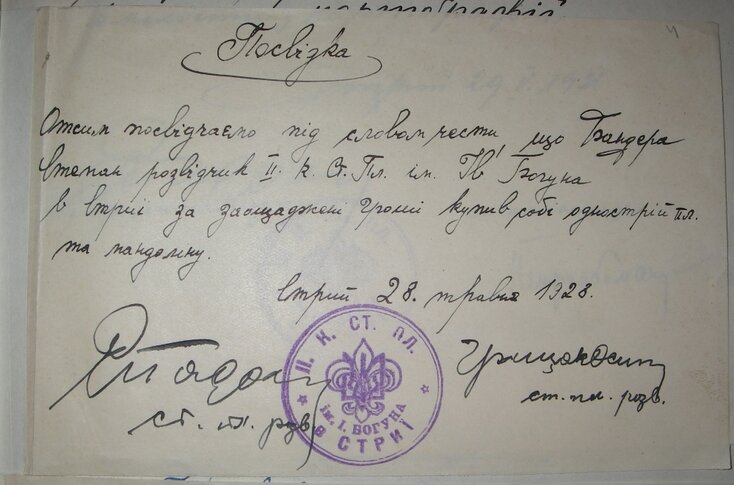 Посвідка
Отсим посвідчаємо під словом чести, що Бандера
Степан розвідчик II. к. Ст. Пл. ім. Ів. Богуна
в Стрию за заощаджені гроші купив собі однострій пл.
та мандоліну.
Стрий 28. травня 1928.
Грицак Осип
ст. пл. розв.
ст. пл. розв.
II. К. СТ. ПЛ.
ім. І. БОГУНА
в СТРИЇ